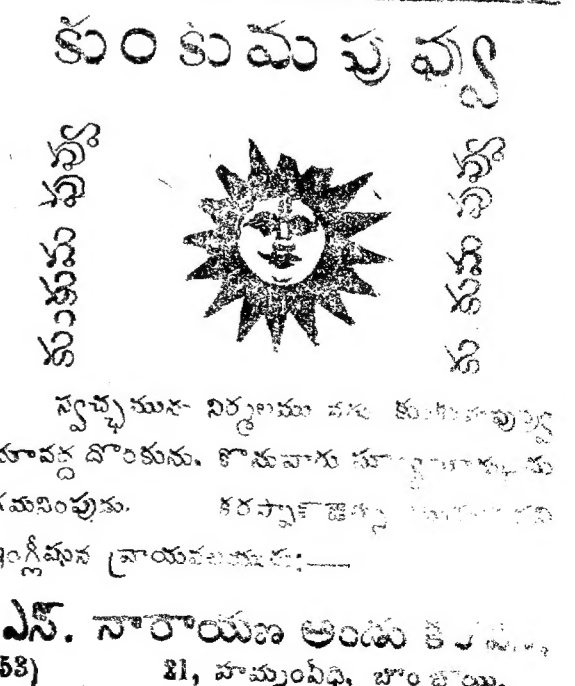 కుంకుమ పువ్వు
కుంకుమ పువ్వు
కుంకుమ పువ్వు
స్వచ్ఛమును నిర్మలము నగు కుంకుమపువ్వు
మావద్ద దొరకును. కొనువారు
గమనింపుడు. కరస్పాండెన్సు
ఇంగ్లీషున వ్రాయవలయును:—
ఎన్. నారాయణ అండు కంపెనీ,
53) 21, హమ్మంవీధి, బొంబాయి.